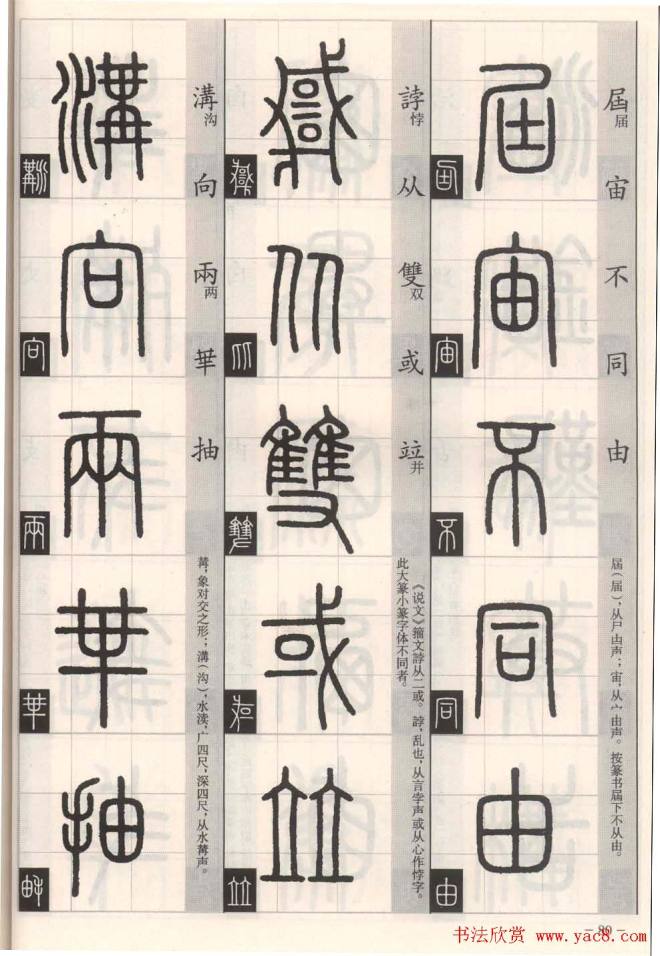 屆届 宙 不 同 由
屆(届),从尸凷声;宙,从宀由声。按篆书屆下不从由。
屆 宙 不 同 由
誖悖 从 雙双 或 竝并
《说文》籀文誖从二或。誖,乱也,从言孛声或从心作悖字。
此大篆小篆字体不同者。
誖 从 雙 或 竝
溝沟 向 兩两 華 抽
冓,象对交之形;溝(沟),水渎,广四尺,深四尺,从水冓声。
溝 向 兩 華 抽
书法欣赏 www.yac8.com